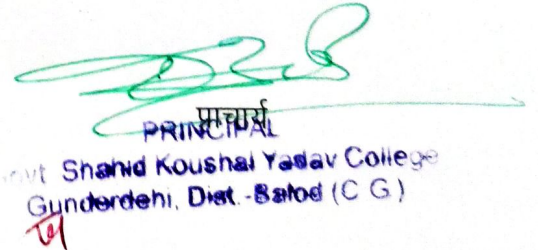 प्राचार्य
PRINCIPAL
Govt Shahid Koushal Yadav College
Gunderdehi, Dist.-Balod (C G)